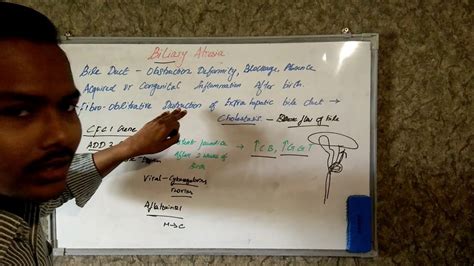 Biliary Atresia
Bile Duct - Obstruction Deformity, Blockage, Absence
Acquired or Congenital Inflammation After birth.
Fibro-Obliterative Destruction of Extra hepatic bile duct →
Cholestasis - flow of bile
CFC1 Gene
ADD3
After 2 weeks of → ↑CB, ↑GGT
Birth
Viral - Cytomegalovirus
Reovirus
Aflatoxines